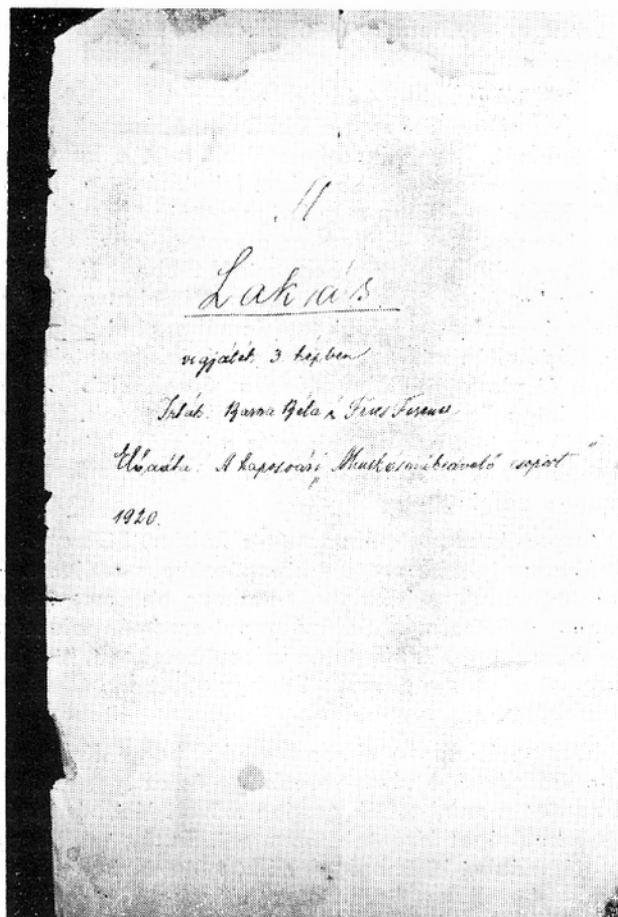 A
Lakás
vigjáték 3 képben
Irták: Barna Béla &
Előadta: A kaposvári „Munkásműkedvelő csoport"
1920.